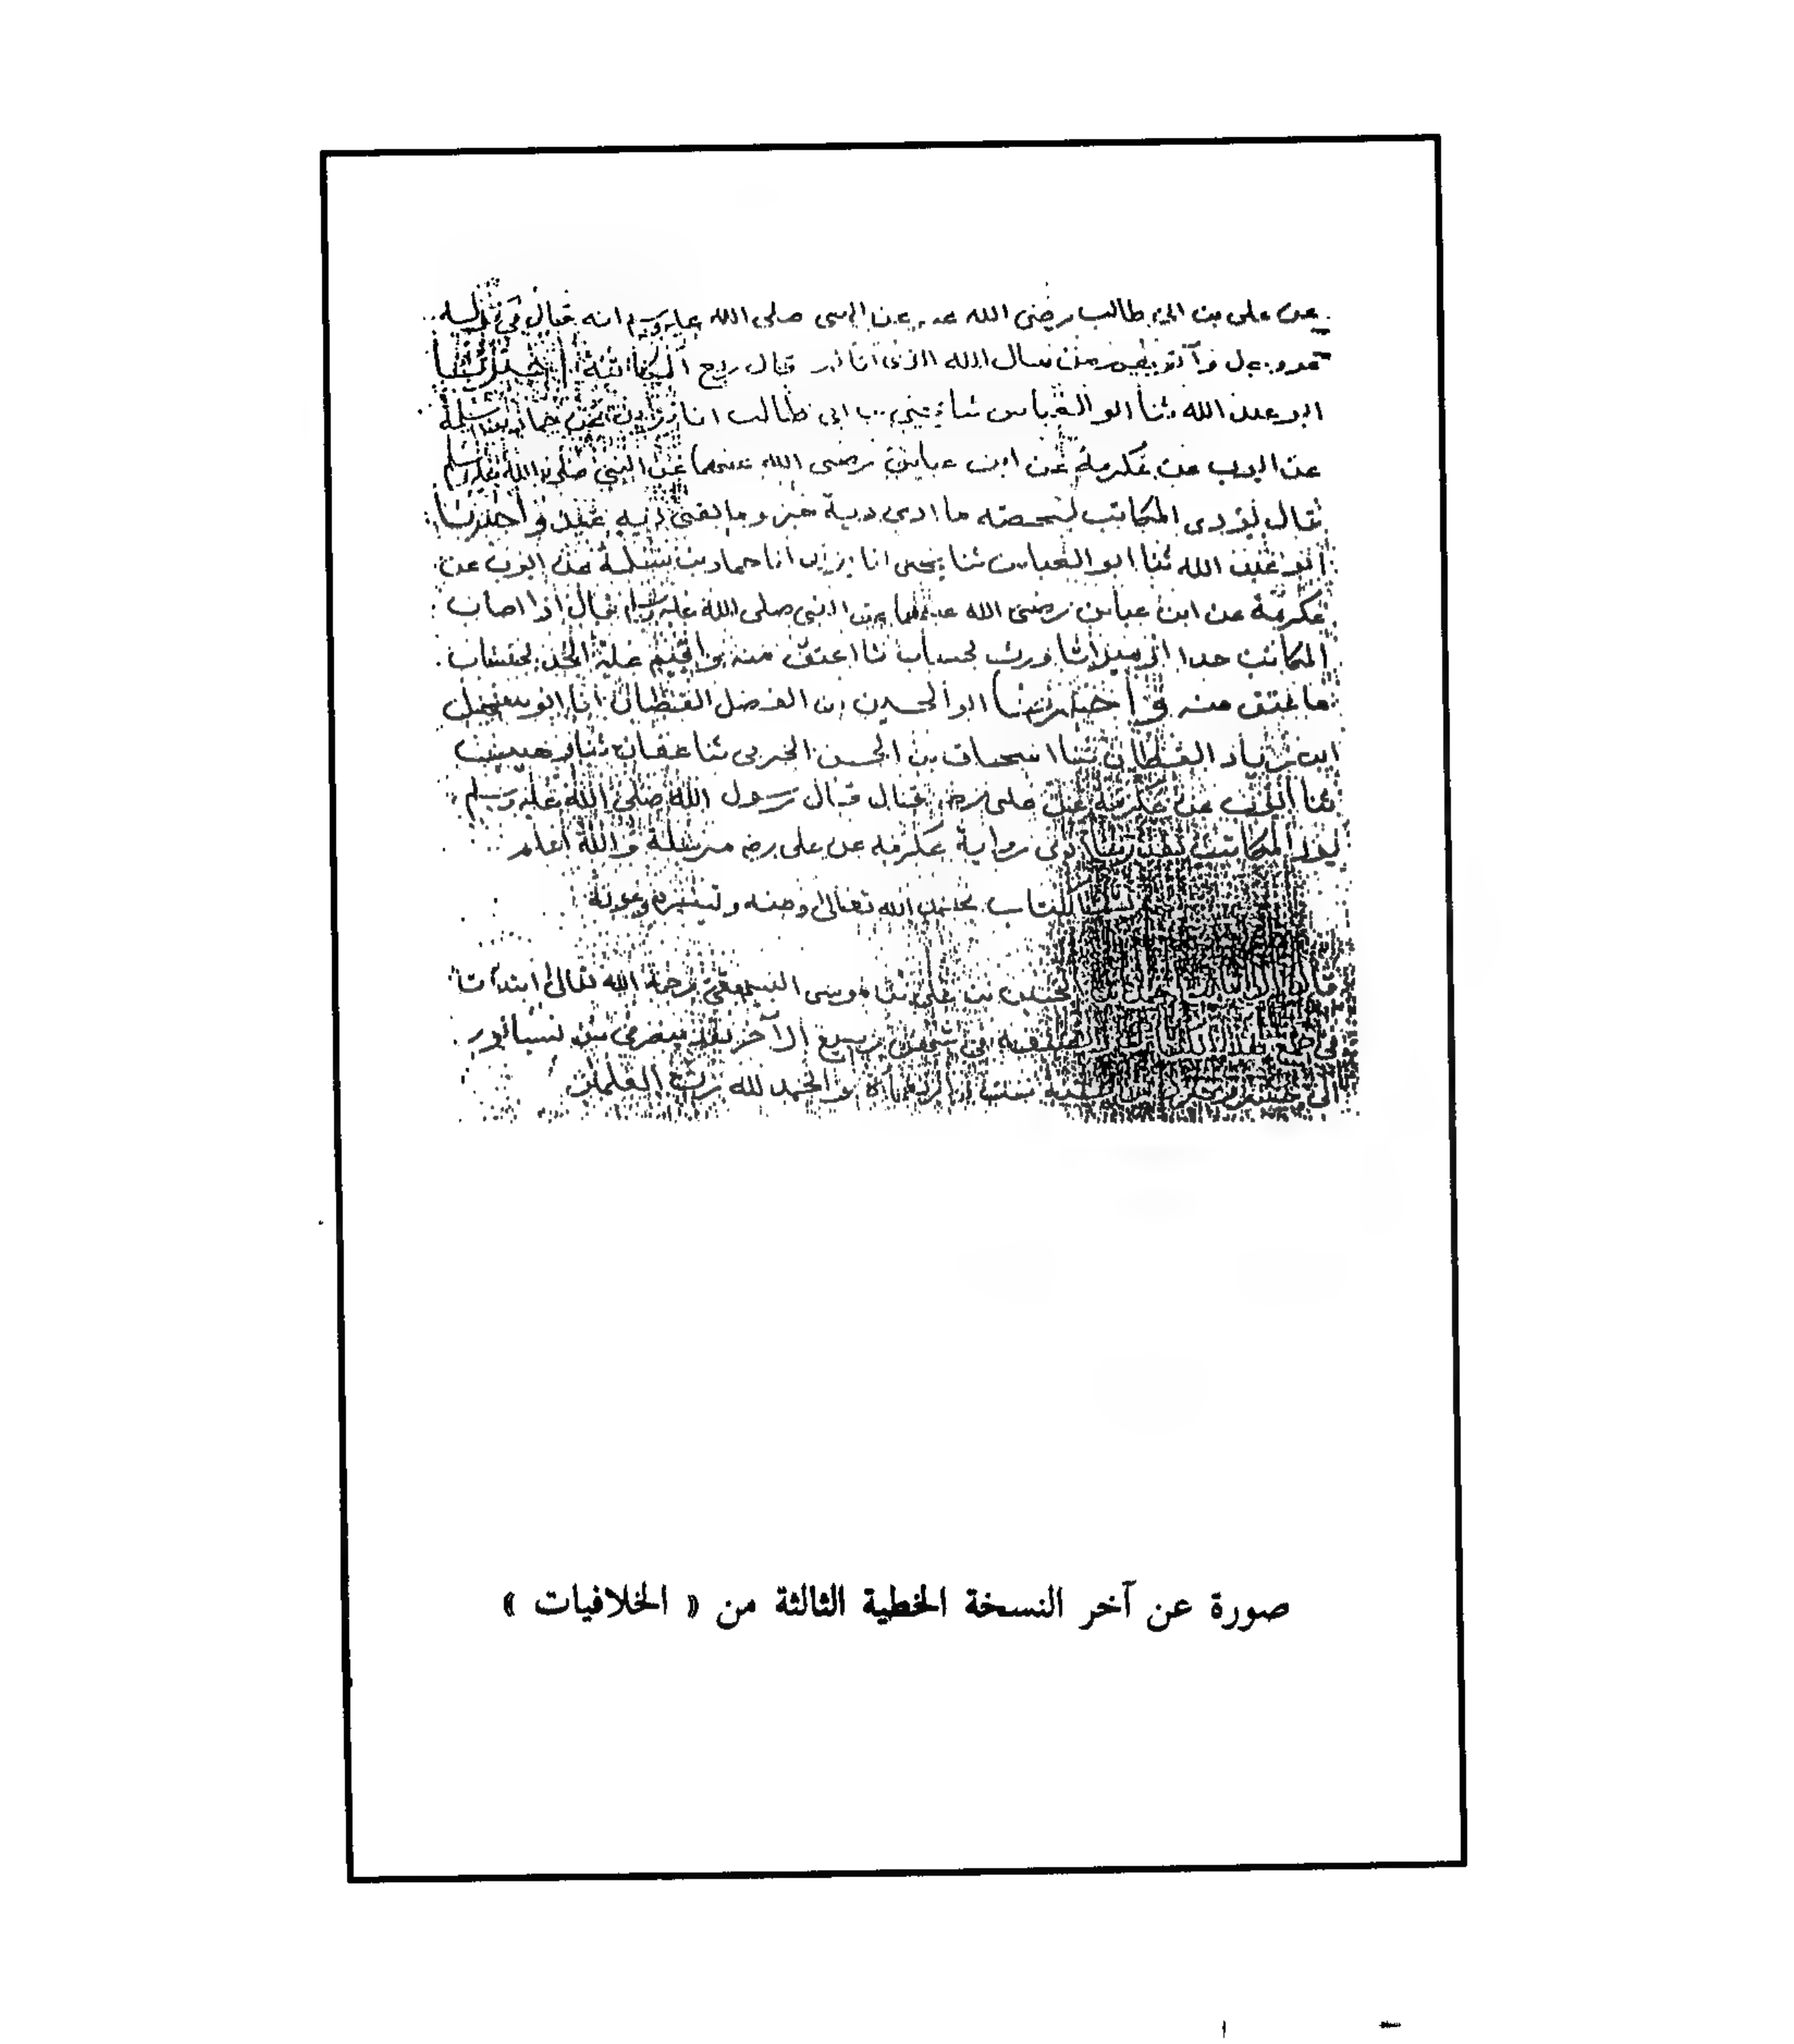 عن على بن ابى طالب رضى الله عنه عن النبى صلى الله عليه وسلم انه قال فى قوله
عز وجل وآتوهم من مال الله الذى اتاكم قال ربع الكتابة اخبرنا
ابو عبد الله ثنا ابو العباس ثنا يحيى بن ابى طالب انا يزيد بن حماد بن سلمة
عن ايوب عن عكرمة عن ابن عباس رضى الله عنهما عن النبى صلى الله عليه وسلم
قال يؤدى المكاتب بحصته ما ادى دية حر وما بقى دية عبد واخبرنا
ابو عبد الله ثنا ابو العباس ثنا يحيى انا يزيد انا حماد بن سلمة عن ايوب عن
عكرمة عن ابن عباس رضى الله عنهما عن النبى صلى الله عليه وسلم قال اذا اصاب
المكاتب حدا او ميراثا ورث بحساب ما اعتق منه واقيم عليه الحد بحساب
ما عتق منه واخبرنا ابو الحسين بن الفضل القطان انا ابو سهل
ابن زياد القطان ثنا اسحاق بن الحسن الحربى ثنا عفان ثنا وهيب
ثنا ايوب عن عكرمة عن على رضه قال قال رسول الله صلى الله عليه وسلم
المكاتب رواية عكرمة عن على رضه مرسلة والله اعلم
الكتاب بحمد الله تعالى ومنه وعونه
قال احمد بن الحسين بن على بن موسى البيهقى رحمه الله تعالى ابتدأت
فى هذا الكتاب فى شهر ربيع الآخر من نيسابور
الى سنة والحمد لله رب العلمين
صورة عن آخر النسخة الخطية الثالثة من « الخلافيات »